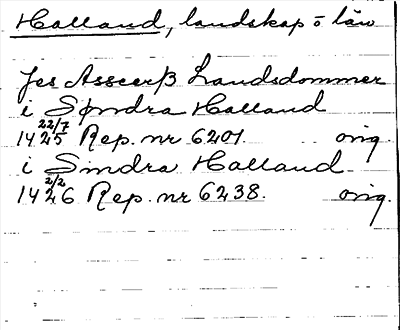 Halland, landskap o län
Jes Assersß Landsdommer
i Søndra Halland
14 22/7 25 Rep. nr 6201. orig.
i Sindra Halland
14 2/2 26 Rep. nr 6238. orig.